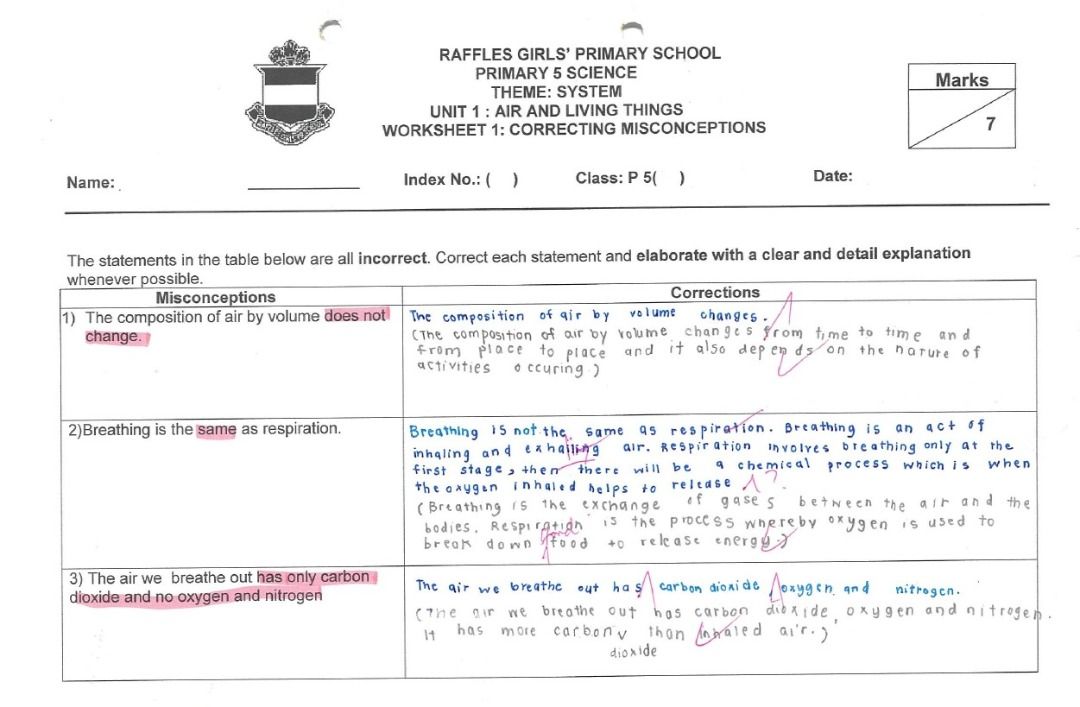 RAFFLES GIRLS' PRIMARY SCHOOL
PRIMARY 5 SCIENCE
THEME: SYSTEM
UNIT 1 : AIR AND LIVING THINGS
WORKSHEET 1: CORRECTING MISCONCEPTIONS
Marks
7
Name:
Index No.: ( )
Class: P 5( )
Date:
The statements in the table below are all incorrect. Correct each statement and elaborate with a clear and detail explanation
whenever possible.
Misconceptions
Corrections
1) The composition of air by volume does not
change.
The composition of air by volume changes.
(The composition of air by volume changes from time to time and
from place to place and it also depends on the nature of
activities occuring.)
2)Breathing is the same as respiration.
Breathing is not the same as respiration. Breathing is an act of
inhaling and exhaling air. Respiration involves breathing only at the
first stage, then there will be a chemical process which is when
the oxygen inhaled helps to release ?
(Breathing is the exchange of gases between the air and the
bodies. Respiration is the process whereby oxygen is used to
break down food to release energy.)
3) The air we breathe out has only carbon
dioxide and no oxygen and nitrogen
The air we breathe out has carbon dioxide oxygen and nitrogen.
(The air we breathe out has carbon dioxide, oxygen and nitrogen.
It has more carbon than inhaled air.)
dioxide